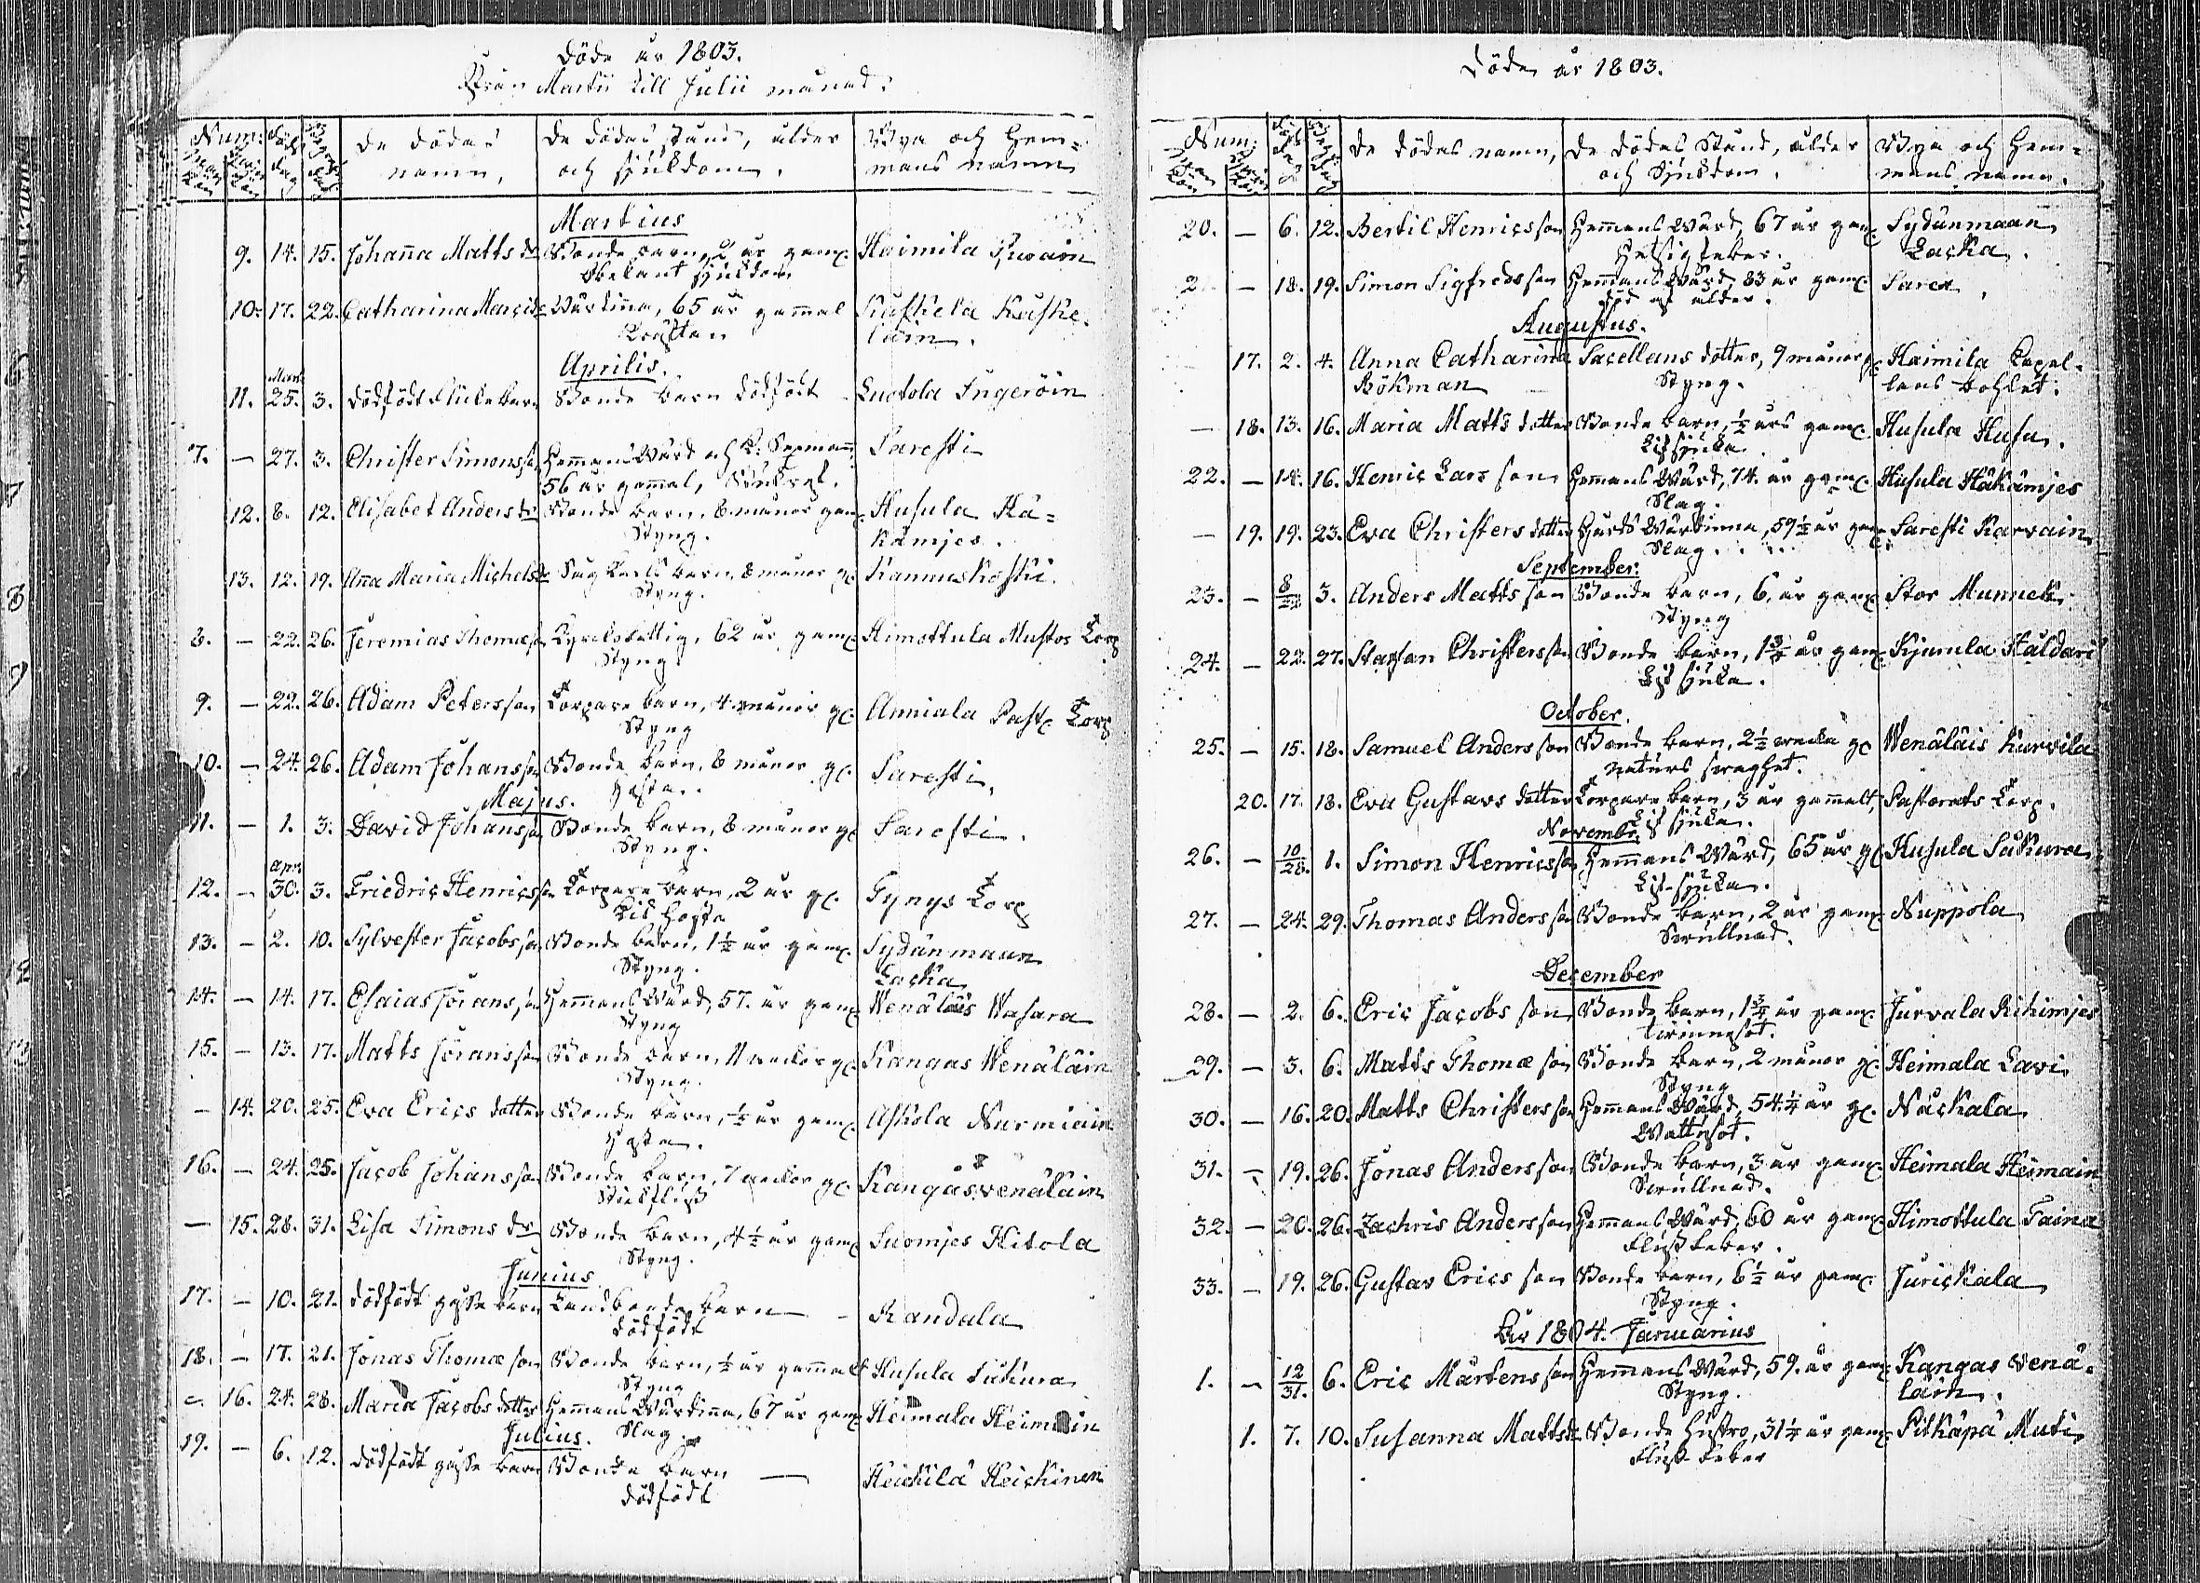 Döde år 1803.
Från Martii till Julii månad.
Num: Döds dag Begrafn: dag De dödas namn, De dödas stånd, ålder och sjukdom. Bya och Hemmans namn
Mankön Qvinkön
Martius
9. 14. 15. Johanna Matts dr Bonde barn, 2 år gam:
Obekant sjukdom
10. 17. 22. Catharina Marcisdr Wärdinna, 65 år gammal Kuskela Kuske-
lain.
Aprilis.
Mart:
11. 25. 3. dödfödt flicke barn Bonde barn dödfödt Luotola Ingeröin
7. — 27. 3. Christer Simonsson Hemmans Wärd och Sexmann Saresti
56 år gammal,
12. 8. 12. Elisabet Anders dr Bonde barn, 8 månor gam: Husula Hä-
Styng. kämjes.
13. 12. 19. Anna Maria Michelsdr barn, 8 månor gl: Kannuskoski.
Styng.
8. — 22. 26. Jeremias Thomæson 62 år gam: Himottula Mustos Torp
Styng
9. — 22. 26. Adam Petersson Torpare barn, 4 månor gl: Anniala Past: Torp
Styng
10. — 24. 26. Adam Johansson Bonde barn, 8 månor gl: Saresti.
Hosta.
Majus.
11. — 1. 3. David Johansson Bonde barn, 8 månor gl: Saresti.
Styng.
Apr:
12. — 30. 3. Friedric Henricsson Torpare barn, 2 år gl: Gynys Torp
Hosta
13. — 2. 10. Sylvester Jacobsson Bonde barn, 1½ år gam: Sydänmaan
Styng. Lacka
14. — 14. 17. Esaias Jöransson Hemmans Wärd, 57. år gam: Wenäläis Wasara
Styng
15. — 13. 17. Matts Jöransson Bonde barn, 11 weckor gl: Kangas Wenäläin
Styng.
— 14. 20. 25. Eva Erics dotter Bonde barn, ½ år gam: Askola Nurmiain
Hosta.
16. — 24. 25. Jacob Johansson Bonde barn, 7 weckor gl: Kangasvenäläin
Stickfluss
— 15. 28. 31. Lisa Simons dr Bonde barn, 4½ år gam: Suomjes Hitola
Styng.
Junius
17. — 10. 21. dödfödt gosse barn Landbonde barn — Randala
dödfödt
18. — 17. 21. Jonas Thomæ son Bonde barn, ½ år gammalt Husula Sukura
Styng
16. 24. 28. Maria Jacobs dotter Hemmans Wärdinna, 67 år gam: Heimala Heimain
Slag.
Julius.
19. — 6. 12. dödfödt gosse barn Bonde barn — Heickilä Heickinen
dödfödt
Döde år 1803.
Num: Döds dag De dödas namn, De dödas Stånd, ålder och Sjukdom. Bya och Hemmans namn.
20. — 6. 12. Bertil Henricsson Hemmans Wärd, 67 år gam: Sydänmaan
Hetsig feber. Lacka.
— 18. 19. Simon Sigfredsson Hemmans Wärd, 83 år gam: Sarca
död af ålder.
Augustus.
17. 2. 4. Anna Catharina Sacellans dotter, 9 månor gl: Haimila Capel-
Bökman Styng. lans bohlet.
— 18. 13. 16. Maria Matts dotter Bonde barn, ½ års gam: Husula Husu.
Lifsjuka
22. — 14. 16. Henric Lars son Hemmans Wärd, 74. år gam: Husula Häkämjes
Slag.
— 19. 19. 23. Eva Christers dotter Wärdinna, 59½ år gam: Saresti Karvain
Slag.
September.
23. — 3. Anders Matts son Bonde barn, 6. år gam: Stor Munneck
Styng
24. — 22. 27. Staffan Christersson Bonde barn, 1¾ år gam: Kjumla Haldari
Lifsjuka.
October.
25. — 15. 18. Samuel Andersson Bonde barn, 2½ wecka gl: Wenäläis Kurvila
naturs swaghet.
20. 17. 18. Eva Gustavs dotter Torpare barn, 3 år gammalt, Pastorats Torp.
Lifsjuka.
November
26. — 10/28. 1. Simon Henricsson Hemmans Wärd, 65 år gl: Husula Sukura
Lifsjuka.
27. — 24. 29. Thomas Andersson Bonde barn, 2 år gam: Nuppola
Swullnad.
December
28. — 2. 6. Eric Jacobs son Bonde barn, 1¾ år gam: Jurvala Rihimjes
29. — 3. 6. Matts Thomæ son Bonde barn, 2 månor gl: Heimala Lavi
Styng
30. — 16. 20. Matts Christersson Hemmans Wärd, 54.¼ år gl: Näckala
Wattusot.
31. — 19. 26. Jonas Andersson Bonde barn, 3 år gam: Heimala Heimain
Swullnad.
32. — 20. 26. Zachris Andersson Hemmans Wärd, 60 år gam: Himottula Taina
Fluss feber.
33. — 19. 26. Gustav Erics son Bonde barn, 6½ år gam: Jurickala
Styng.
År 1804. Januarius
1. — 12/31. 6. Eric Mårtens son Hemmans Wärd, 59. år gam: Kangas venä-
Styng. läin.
1. 7. 10. Susanna Mattsdr Bonde hustro, 31¼ år gam: Pitkäpä Muti
Fluss feber